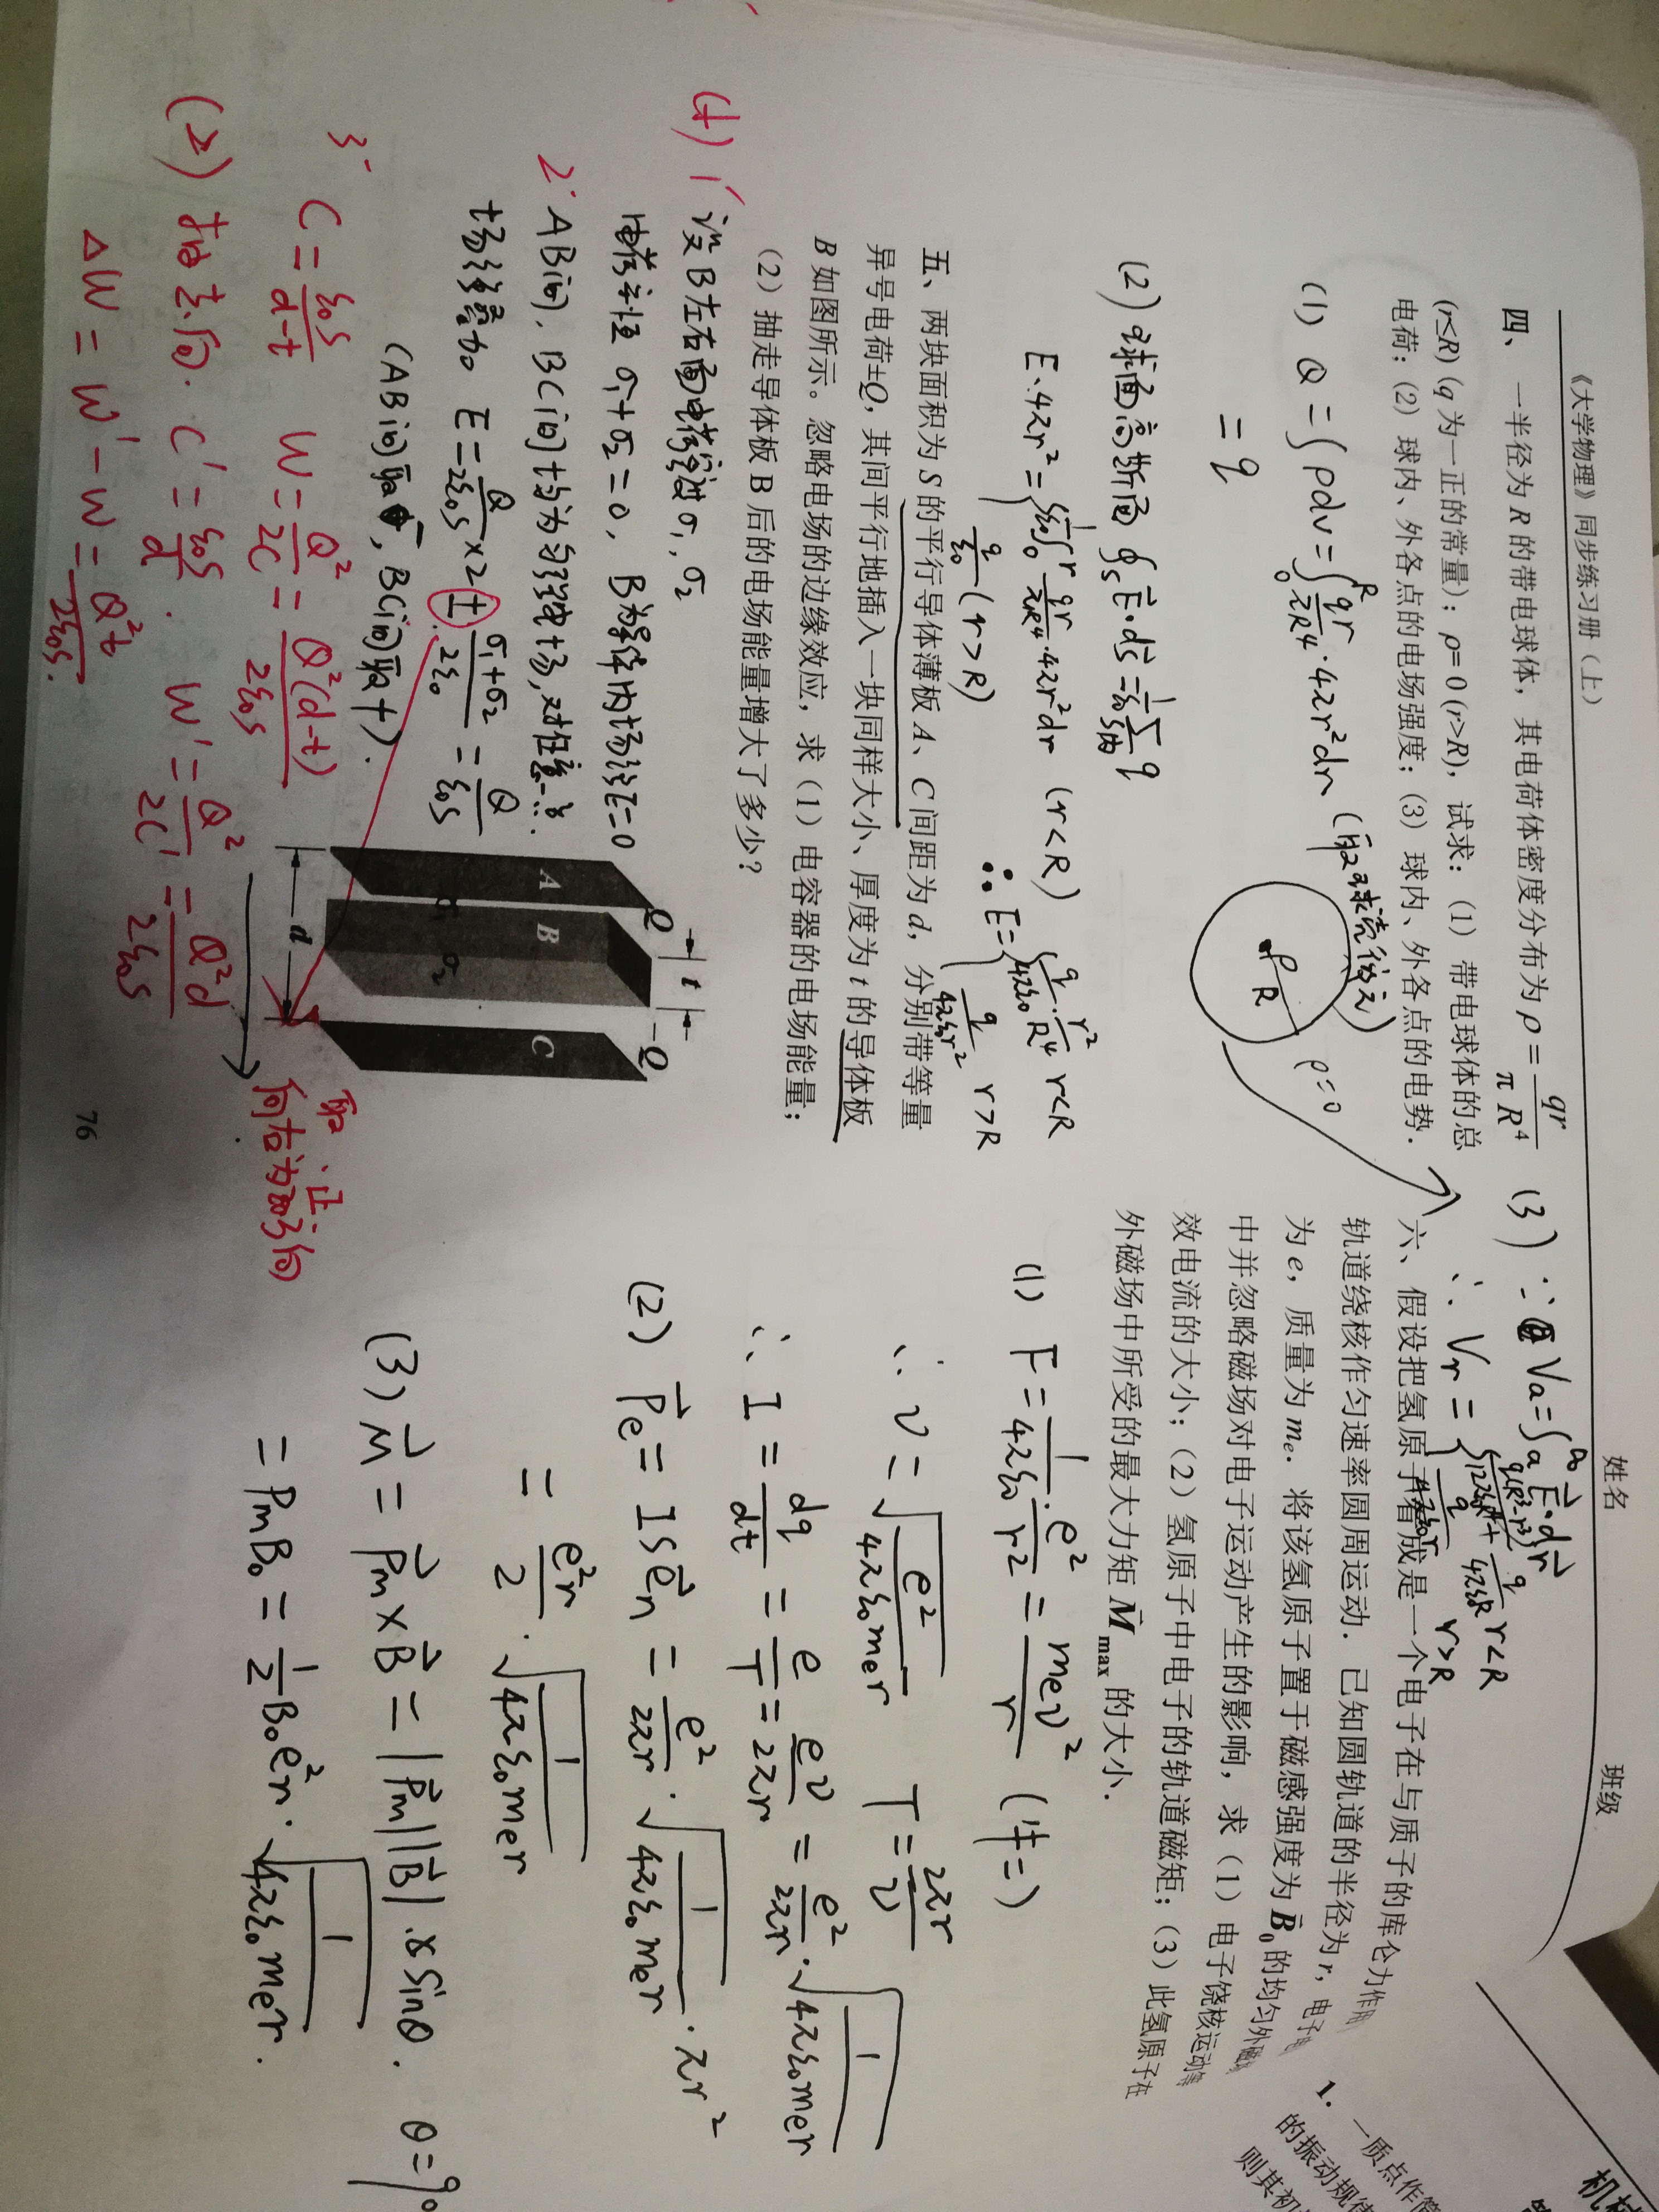 《大学物理》同步练习册（上）
姓名
班级
四、一半径为 R 的带电球体，其电荷体密度分布为 ρ = qr/πR⁴
(r≤R) (q 为一正的常量)；ρ=0 (r>R)，试求：（1）带电球体的总
电荷；（2）球内、外各点的电场强度；（3）球内、外各点的电势．
(1) Q = ∫ρdv = ∫₀ᴿ qr/πR⁴ · 4πr²dr (取球壳微元)
= q
ρ R ρ=0
(2) 球面高斯面 ∮s E⃗·ds⃗ = 1/ε₀ Σ内 q
E·4πr² = { 1/ε₀ ∫₀ʳ qr/πR⁴ · 4πr²dr (r<R)
q/ε₀ (r>R)
∴ E = { q/4πε₀ · r²/R⁴ r<R
q/4πε₀r² r>R
五、两块面积为 S 的平行导体薄板 A、C 间距为 d，分别带等量
异号电荷±Q，其间平行地插入一块同样大小、厚度为 t 的导体板
B 如图所示。忽略电场的边缘效应，求（1）电容器的电场能量；
（2）抽走导体板 B 后的电场能量增大了多少？
(1) 1° 设B左右面电荷密度 σ₁, σ₂
电荷守恒 σ₁+σ₂=0, B为导体内场强E=0
2° AB间, BC间均为匀强电场, 对任意一点
场强叠加 E = Q/2ε₀s ×2 ± σ₁+σ₂/2ε₀ = Q/ε₀s
(AB间取-, BC间取+).
3° C = ε₀s/d-t W = Q²/2C = Q²(d-t)/2ε₀s
(2) 抽去后. C' = ε₀s/d . W' = Q²/2C' = Q²d/2ε₀s
ΔW = W' - W = Q²t/2ε₀s.
A B C
Q t -Q
σ₁ σ₂
d
取.
向右为正方向
76
(3) ∵ Va = ∫ₐ^∞ E⃗·dr⃗
∴ Vr = { q(R³-r³)/12πε₀R⁴ + q/4πε₀R r<R
q/4πε₀r r>R
六、假设把氢原子看成是一个电子在与质子的库仑力作用
轨道绕核作匀速率圆周运动．已知圆轨道的半径为 r，电子
为 e，质量为 mₑ．将该氢原子置于磁感强度为 B⃗₀ 的均匀外磁
中并忽略磁场对电子运动产生的影响，求（1）电子饶核运动等
效电流的大小；（2）氢原子中电子的轨道磁矩；（3）此氢原子在
外磁场中所受的最大力矩 M⃗max 的大小．
(1) F = 1/4πε₀ · e²/r² = mₑv²/r (牛二)
∴ v = √(e²/4πε₀mₑr) T = 2πr/v
∴ I = dq/dt = e/T = ev/2πr = e²/2πr · √(1/4πε₀mₑr)
(2) P⃗e = ISe⃗n = e²/2πr · √(1/4πε₀mₑr) · πr²
= e²r/2 · √(1/4πε₀mₑr)
(3) M⃗ = P⃗m×B⃗ = |P⃗m||B⃗|·sinθ. θ=90
= PmB₀ = 1/2 B₀e²r · √(1/4πε₀mₑr) .
1. 一质点作简
的振动规律
则其初
机械